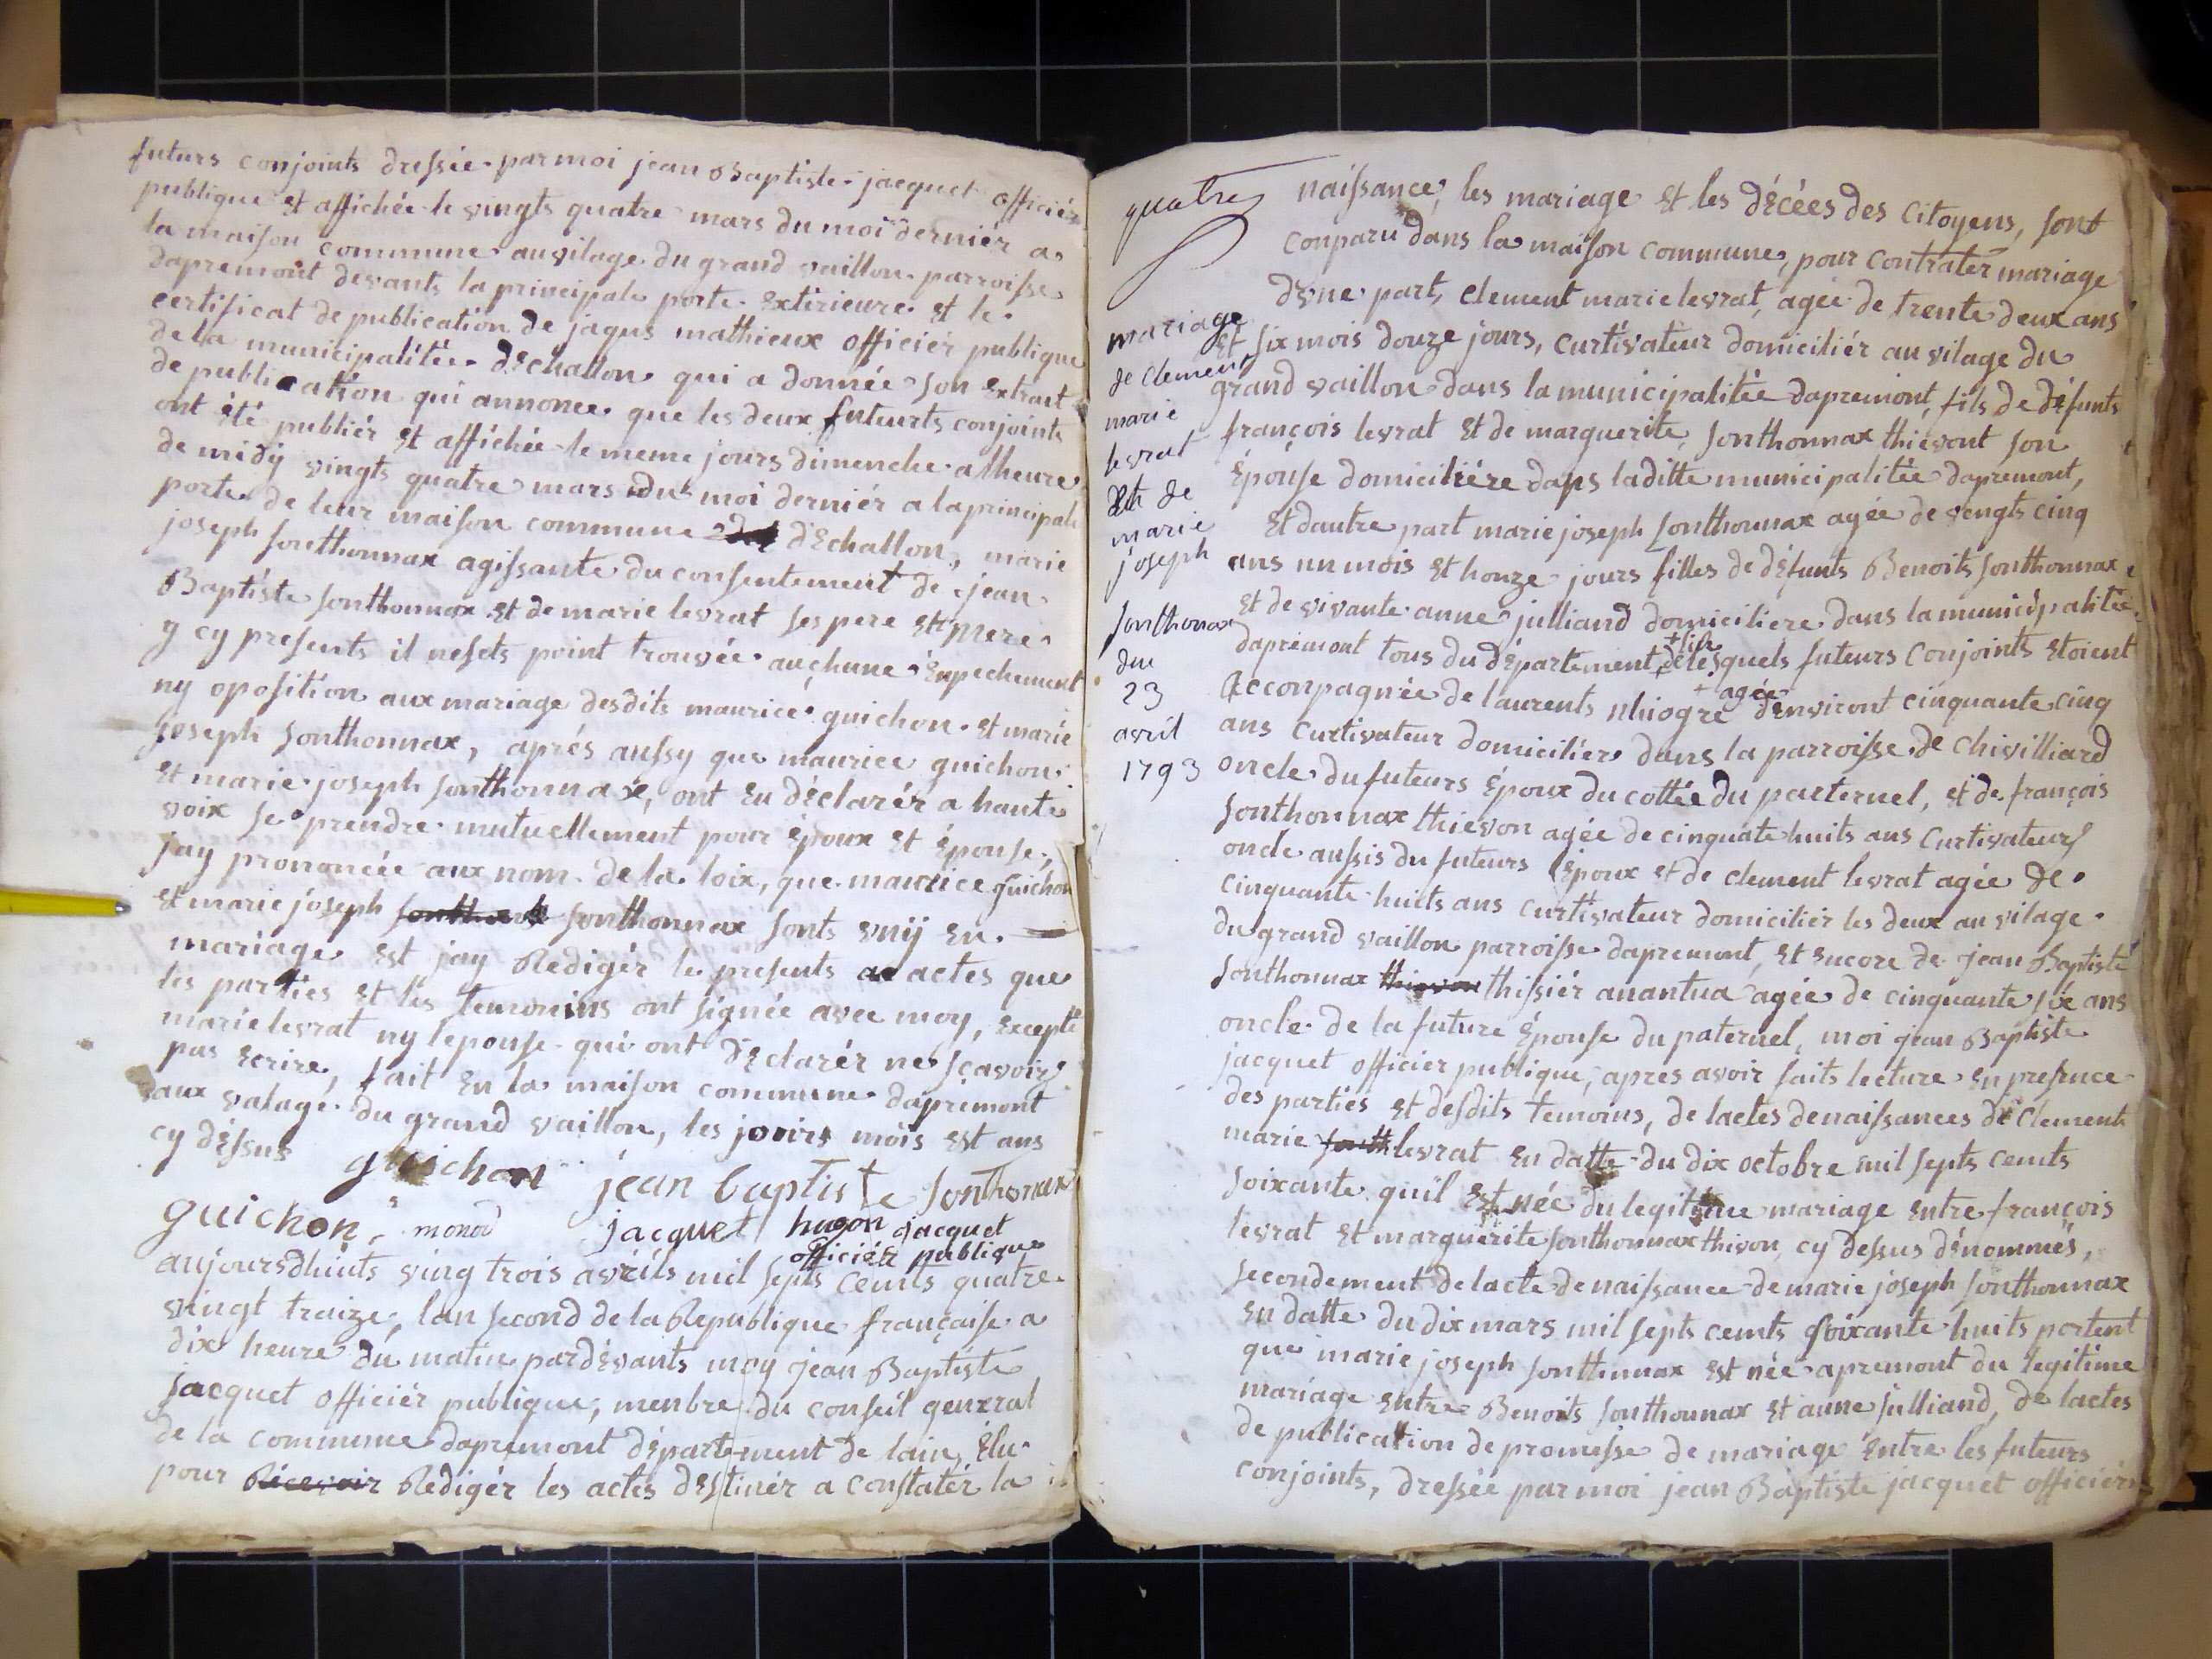 futurs conjoints dressée par moi jean Baptiste jacquet officiér
publique et affichée le vingts quatre mars du moi derniér a
la maison commune au vilage du grand vaillon parroisse
dapremont devants la principale porte extérieure et le
certificat de publication de jaqus mathieux officiér publique
de la municipalitée dEchallon qui a donnée son extrait
de publication qui annonce que les deux futeurts conjoints
ont été publiér et affichée le meme jours dimenche a lheure
de midÿ vingts quatre mars du moi derniér a la principale
porte de leur maison commune dEchallon, marie
joseph sonthonnax agissante du consentement de jean
Baptiste sonthonnax et de marie levrat ses pere et mere
y cy presents il nesets point trouvée auchune Enpechement
ny oposition aux mariage desdits maurice guichon et marie
joseph sonthonnax, aprés aussy que maurice guichon
et marie joseph sonthonnax, ont eu déclarér a haute
voix se prendre mutuellement pour époux et épouse,
jay prononcée aux nom de la loix, que maurice guichon
et marie joseph sonthonnax sonts vnij en
mariage est jay Redigér le presents actes que
les parties et les temouins ont signée avec moy, excepté
marie levrat ny lepouse qui ont déclarér ne sçavoir
pas ecrire, fait en la maison commune dapremont
aux valage du grand vaillon, les jouirs mois est ans
cy dessus guichon jean baptiste Sonthonax
guichon monod jacquet hugon jacquet
officiér publique
aujoursdhuits ving trois avrils mil septs cemts quatre
vingt traize, lan second de la Republique française a
dix heure du matin pardevants moy jean Baptiste
jacquet officiér publique, menbre du conseil general
de la commune dapremont département de lain, élu
pour Récevoir Redigér les actes destinér a constatér la
quatre
naissance, les mariage et les décées des citoyens, sont
conparu dans la maison commune, pour contratér mariage
dvne part, clement marie levrat, agée de trente deux ans
et six mois douze jours, curtivateur domiciliér au vilage du
grand vaillon dans la municipalitée dapremont, fils de défunts
françois levrat et de marguerite sonthonnax thievont son
épouse domiciliére dans laditte municipalitée dapremont,
et dautre part marie joseph sonthonnax agée de vengts cinq
ans un mois et honze jours filles de défunts Benoits sonthonnax
et de vivante anne julliand domiciliere dans la municipalitée
dapremont tous du département de lain lesquels futeurs conjoints etoient
acconpagnée de laurents nhiogre agée denviront cinquante cinq
ans curtivateur domiciliére dans la parroisse de chivilliard
oncle du futeurs époux du cottée du parternel, et de françois
sonthonnax thievon agée de cinquate huits ans curtivateur
oncle aussis du futeurs époux et de clement levrat agée de
cinquante huits ans curtivateur domiciliér les deux au vilage
du grand vaillon parroisse dapremont, et encore de jean Baptiste
sonthonnax thievon thissiér anantua agée de cinquante six ans
oncle de la future épouse du paternel, moi jean Baptiste
jacquet officiér publique, apres avoir faits lecture en presence
des parties et desdits temoins, de lactes denaissances de clement
marie levrat en datte du dix octobre mil septs cemts
soixante quil est née du legitime mariage entre françois
levrat et marguerite sonthonnax thivon, cy dessus dénommés,
secondement de lacte de naissance de marie joseph sonthonnax
en datte du dix mars mil septs cemts soixante huits portent
que marie joseph sonthonnax est née apremont du legitime
mariage entre Benoits sonthonnax et anne julliand, de lactes
de publication de promesse de mariage entre les futeurs
conjoints, dressée par moi jean Baptiste jacquet officiér
mariage
de clement
marie
levrat
et de
marie
joseph
sonthonax
du
23
avril
1793